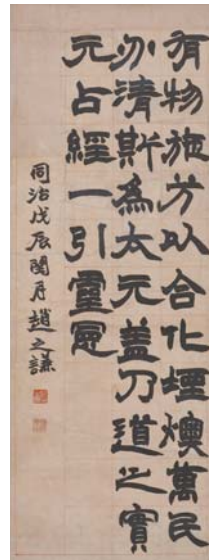 有物施方以合化堙燠萬民
勿清斯為太元蓋乃道之實
元占經一引靈冕
同治戊辰閏月趙之謙